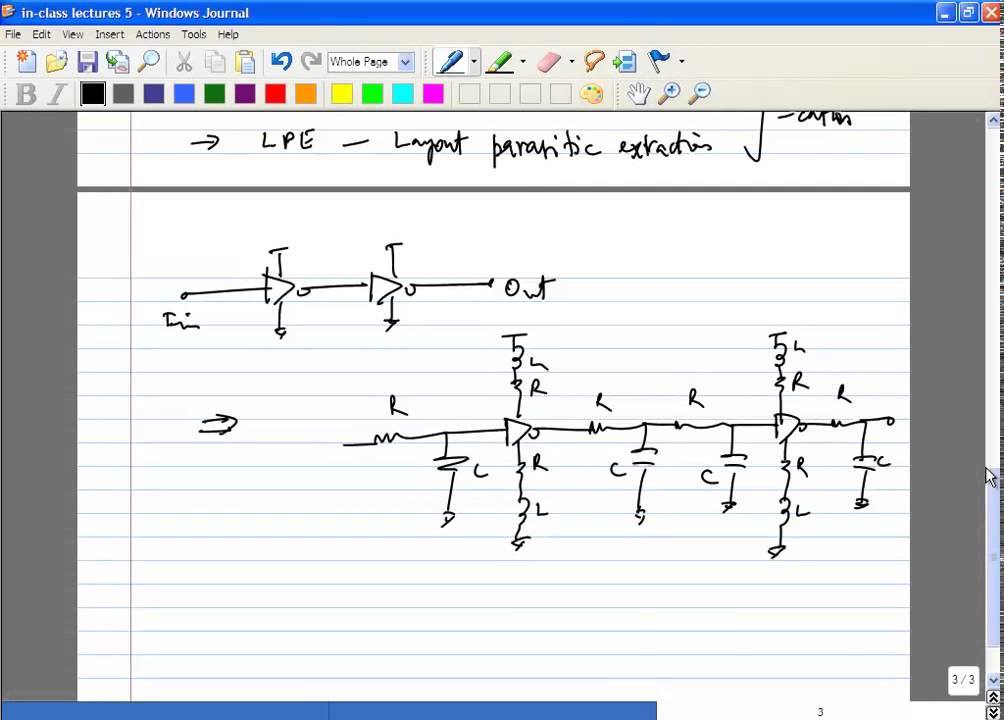 in-class lectures 5 - Windows Journal
File Edit View Insert Actions Tools Help
Whole Page
B I
→ LPE — Layout parasitic extraction
Out
In
L L
R R
R R R R
⇒
C R C C R C
L L
3 / 3
3